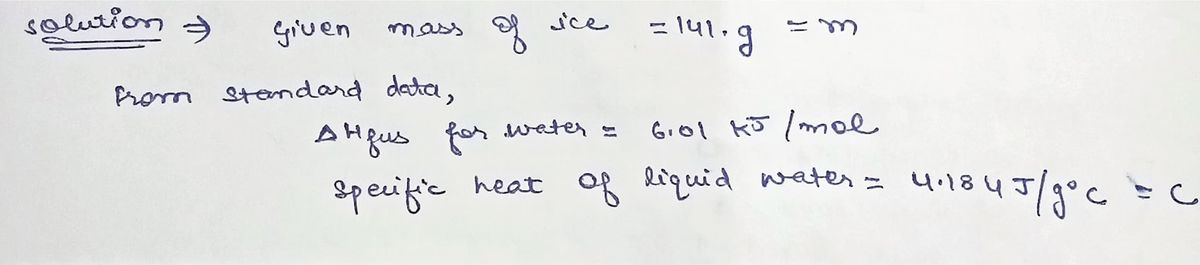 solution ⇒ given mass of ice = 141.g = m
from standard data,
ΔHfus for water = 6.01 KJ/mol
specific heat of liquid water = 4.184 J/g°c = c